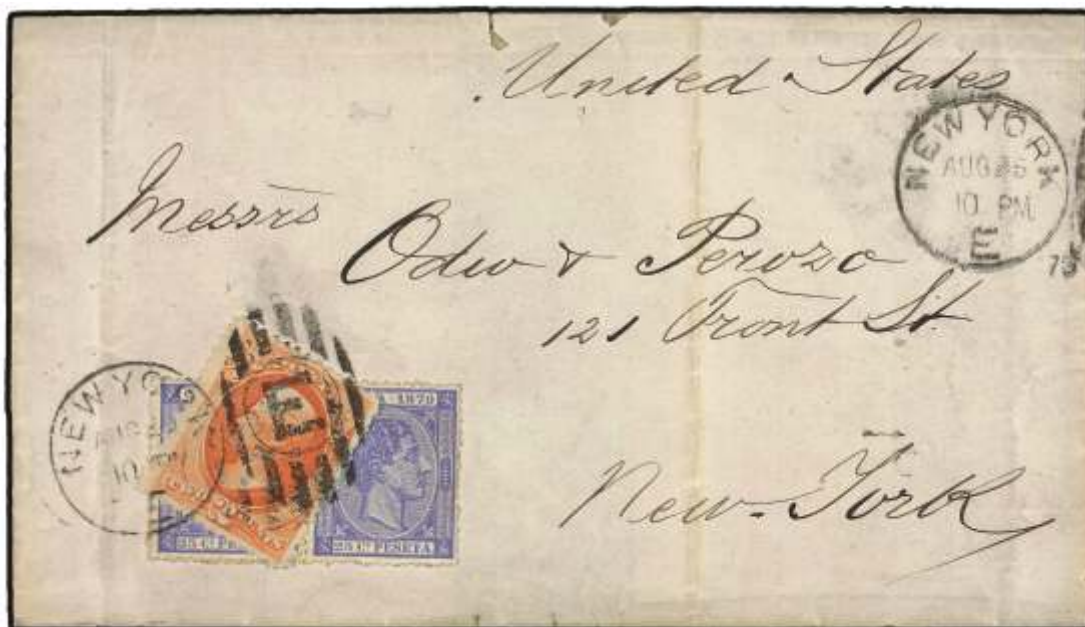 United States
NEW YORK
AUG 25
10 PM
E
75
Messrs
Odio & Perozo
121 Front St.
New-York
NEW YO
10
E
1879
25 Cs PE
25 Cs PESETA